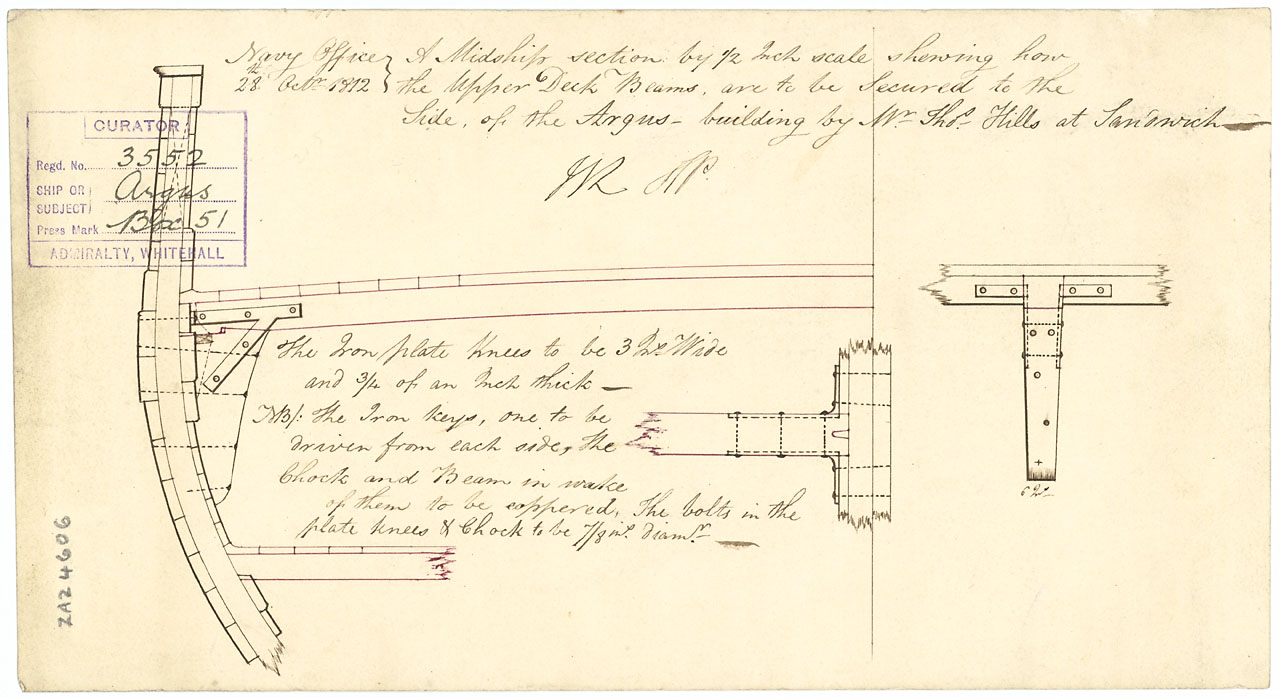 Navy Office } A Midship section by 1/2 Inch scale shewing how
28th Octr 1812 } the Upper Deck Beams, are to be Secured to the
Side, of the Argus - building by Mr Thos. Hills at Sandwich
CURATOR
Regd. No. 3552
SHIP OR SUBJECT Argus
Press Mark Box 51
ADMIRALTY, WHITEHALL
The Iron plate Knees to be 3 Ins. Wide
and 3/4 of an Inch thick —
NB/: The Iron keys, one to be
driven from each side, The
Chock and Beam in wake
of them to be coppered, The bolts in the
plate knees & Chock to be 7/8 ins. diamr. —
6 Ins.
ZAZ4606